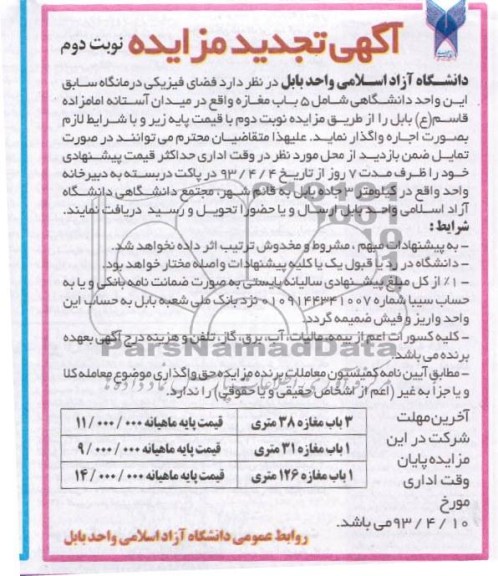 آگهی تجدید مزایده نوبت دوم
دانشگاه آزاد اسلامی واحد بابل در نظر دارد فضای فیزیکی درمانگاه سابق
این واحد دانشگاهی شامل ۵ باب مغازه واقع در میدان آستانه امامزاده
قاسم(ع) بابل را از طریق مزایده نوبت دوم با قیمت پایه زیر و با شرایط لازم
بصورت اجاره واگذار نماید. علیهذا متقاضیان محترم می توانند در صورت
تمایل ضمن بازدید از محل مورد نظر در وقت اداری حداکثر قیمت پیشنهادی
خود را ظرف مدت ۷ روز از تاریخ ۹۳/۴/۴ در پاکت دربسته به دبیرخانه
واحد واقع در کیلومتر ۳ جاده بابل به قائم شهر، مجتمع دانشگاهی دانشگاه
آزاد اسلامی واحد بابل ارسال و یا حضورا تحویل و رسید دریافت نمایند.
شرایط:
- به پیشنهادات مبهم ، مشروط و مخدوش ترتیب اثر داده نخواهد شد.
- دانشگاه در رد یا قبول یک یا کلیه پیشنهادات واصله مختار خواهد بود.
- ۱٪ از کل مبلغ پیشنهادی سالیانه بایستی به صورت ضمانت نامه بانکی و یا به
حساب سیبا شماره ۰۱۰۹۱۴۴۳۴۱۰۰۷ نزد بانک ملی شعبه بابل به حساب این
واحد واریز و فیش ضمیمه گردد.
- کلیه کسورات اعم از بیمه، مالیات، آب، برق، گاز، تلفن و هزینه درج آگهی بعهده
برنده می باشد.
ParsNamadData
- مطابق آیین نامه کمیسیون معاملات برنده مزایده حق واگذاری موضوع معامله کلا
و یا جزأ به غیر (اعم از اشخاص حقیقی و یا حقوقی) را ندارد.
آخرین مهلت
شرکت در این
مزایده پایان
وقت اداری
مورخ
۹۳/۴/۱۰ می باشد.
۳ باب مغازه ۳۸ متری قیمت پایه ماهیانه ۱۱/۰۰۰/۰۰۰
۱ باب مغازه ۳۱ متری قیمت پایه ماهیانه ۹/۰۰۰/۰۰۰
۱ باب مغازه ۱۲۶ متری قیمت پایه ماهیانه ۱۴/۰۰۰/۰۰۰
روابط عمومی دانشگاه آزاد اسلامی واحد بابل